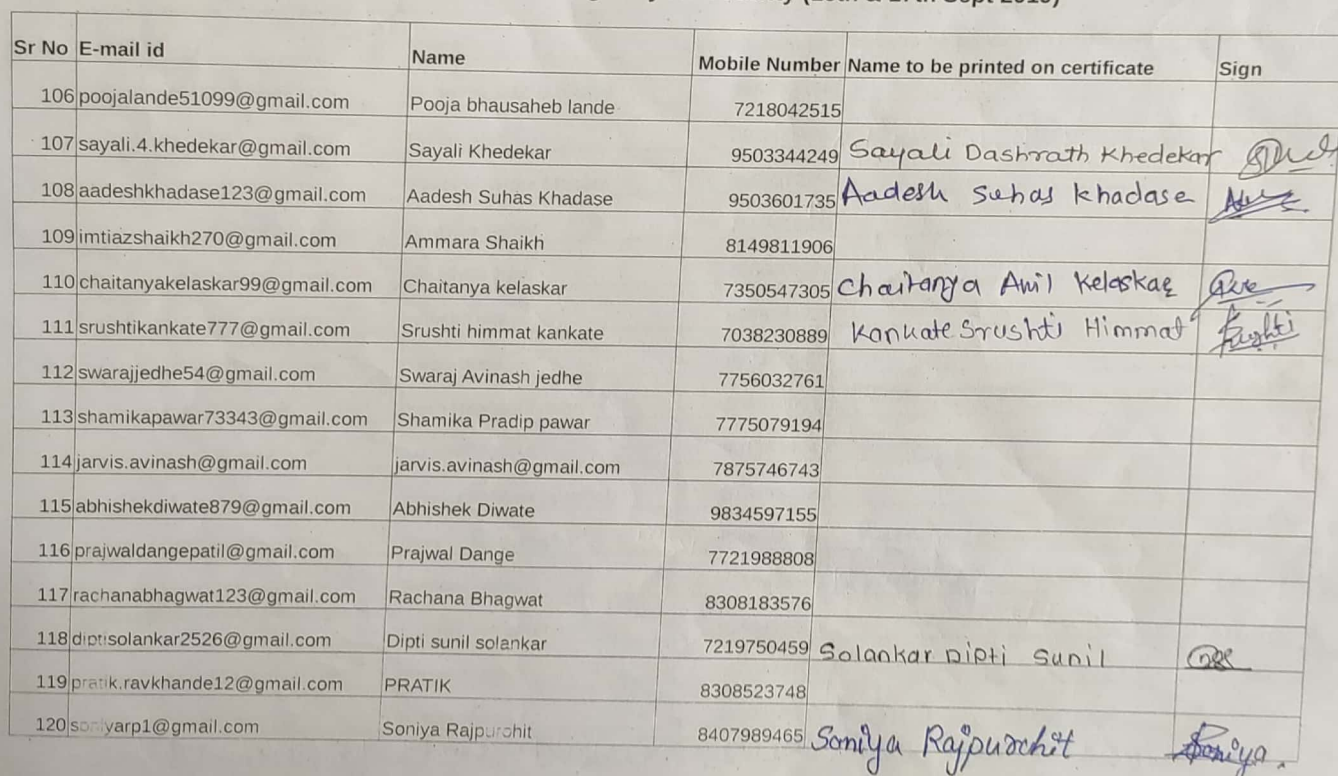 Sr No E-mail id Name Mobile Number Name to be printed on certificate Sign
106 poojalande51099@gmail.com Pooja bhausaheb lande 7218042515
107 sayali.4.khedekar@gmail.com Sayali Khedekar 9503344249 Sayali Dashrath Khedekar
108 aadeshkhadase123@gmail.com Aadesh Suhas Khadase 9503601735 Aadesh Suhas Khadase
109 imtiazshaikh270@gmail.com Ammara Shaikh 8149811906
110 chaitanyakelaskar99@gmail.com Chaitanya kelaskar 7350547305 Chaitanya Anil Kelaskar
111 srushtikankate777@gmail.com Srushti himmat kankate 7038230889 Kankate Srushti Himmat
112 swarajjedhe54@gmail.com Swaraj Avinash jedhe 7756032761
113 shamikapawar73343@gmail.com Shamika Pradip pawar 7775079194
114 jarvis.avinash@gmail.com jarvis.avinash@gmail.com 7875746743
115 abhishekdiwate879@gmail.com Abhishek Diwate 9834597155
116 prajwaldangepatil@gmail.com Prajwal Dange 7721988808
117 rachanabhagwat123@gmail.com Rachana Bhagwat 8308183576
118 diptisolankar2526@gmail.com Dipti sunil solankar 7219750459 Solankar Dipti Sunil
119 pratik.ravkhande12@gmail.com PRATIK 8308523748
120 soniyarp1@gmail.com Soniya Rajpurohit 8407989465 Soniya Rajpurohit Soniya.